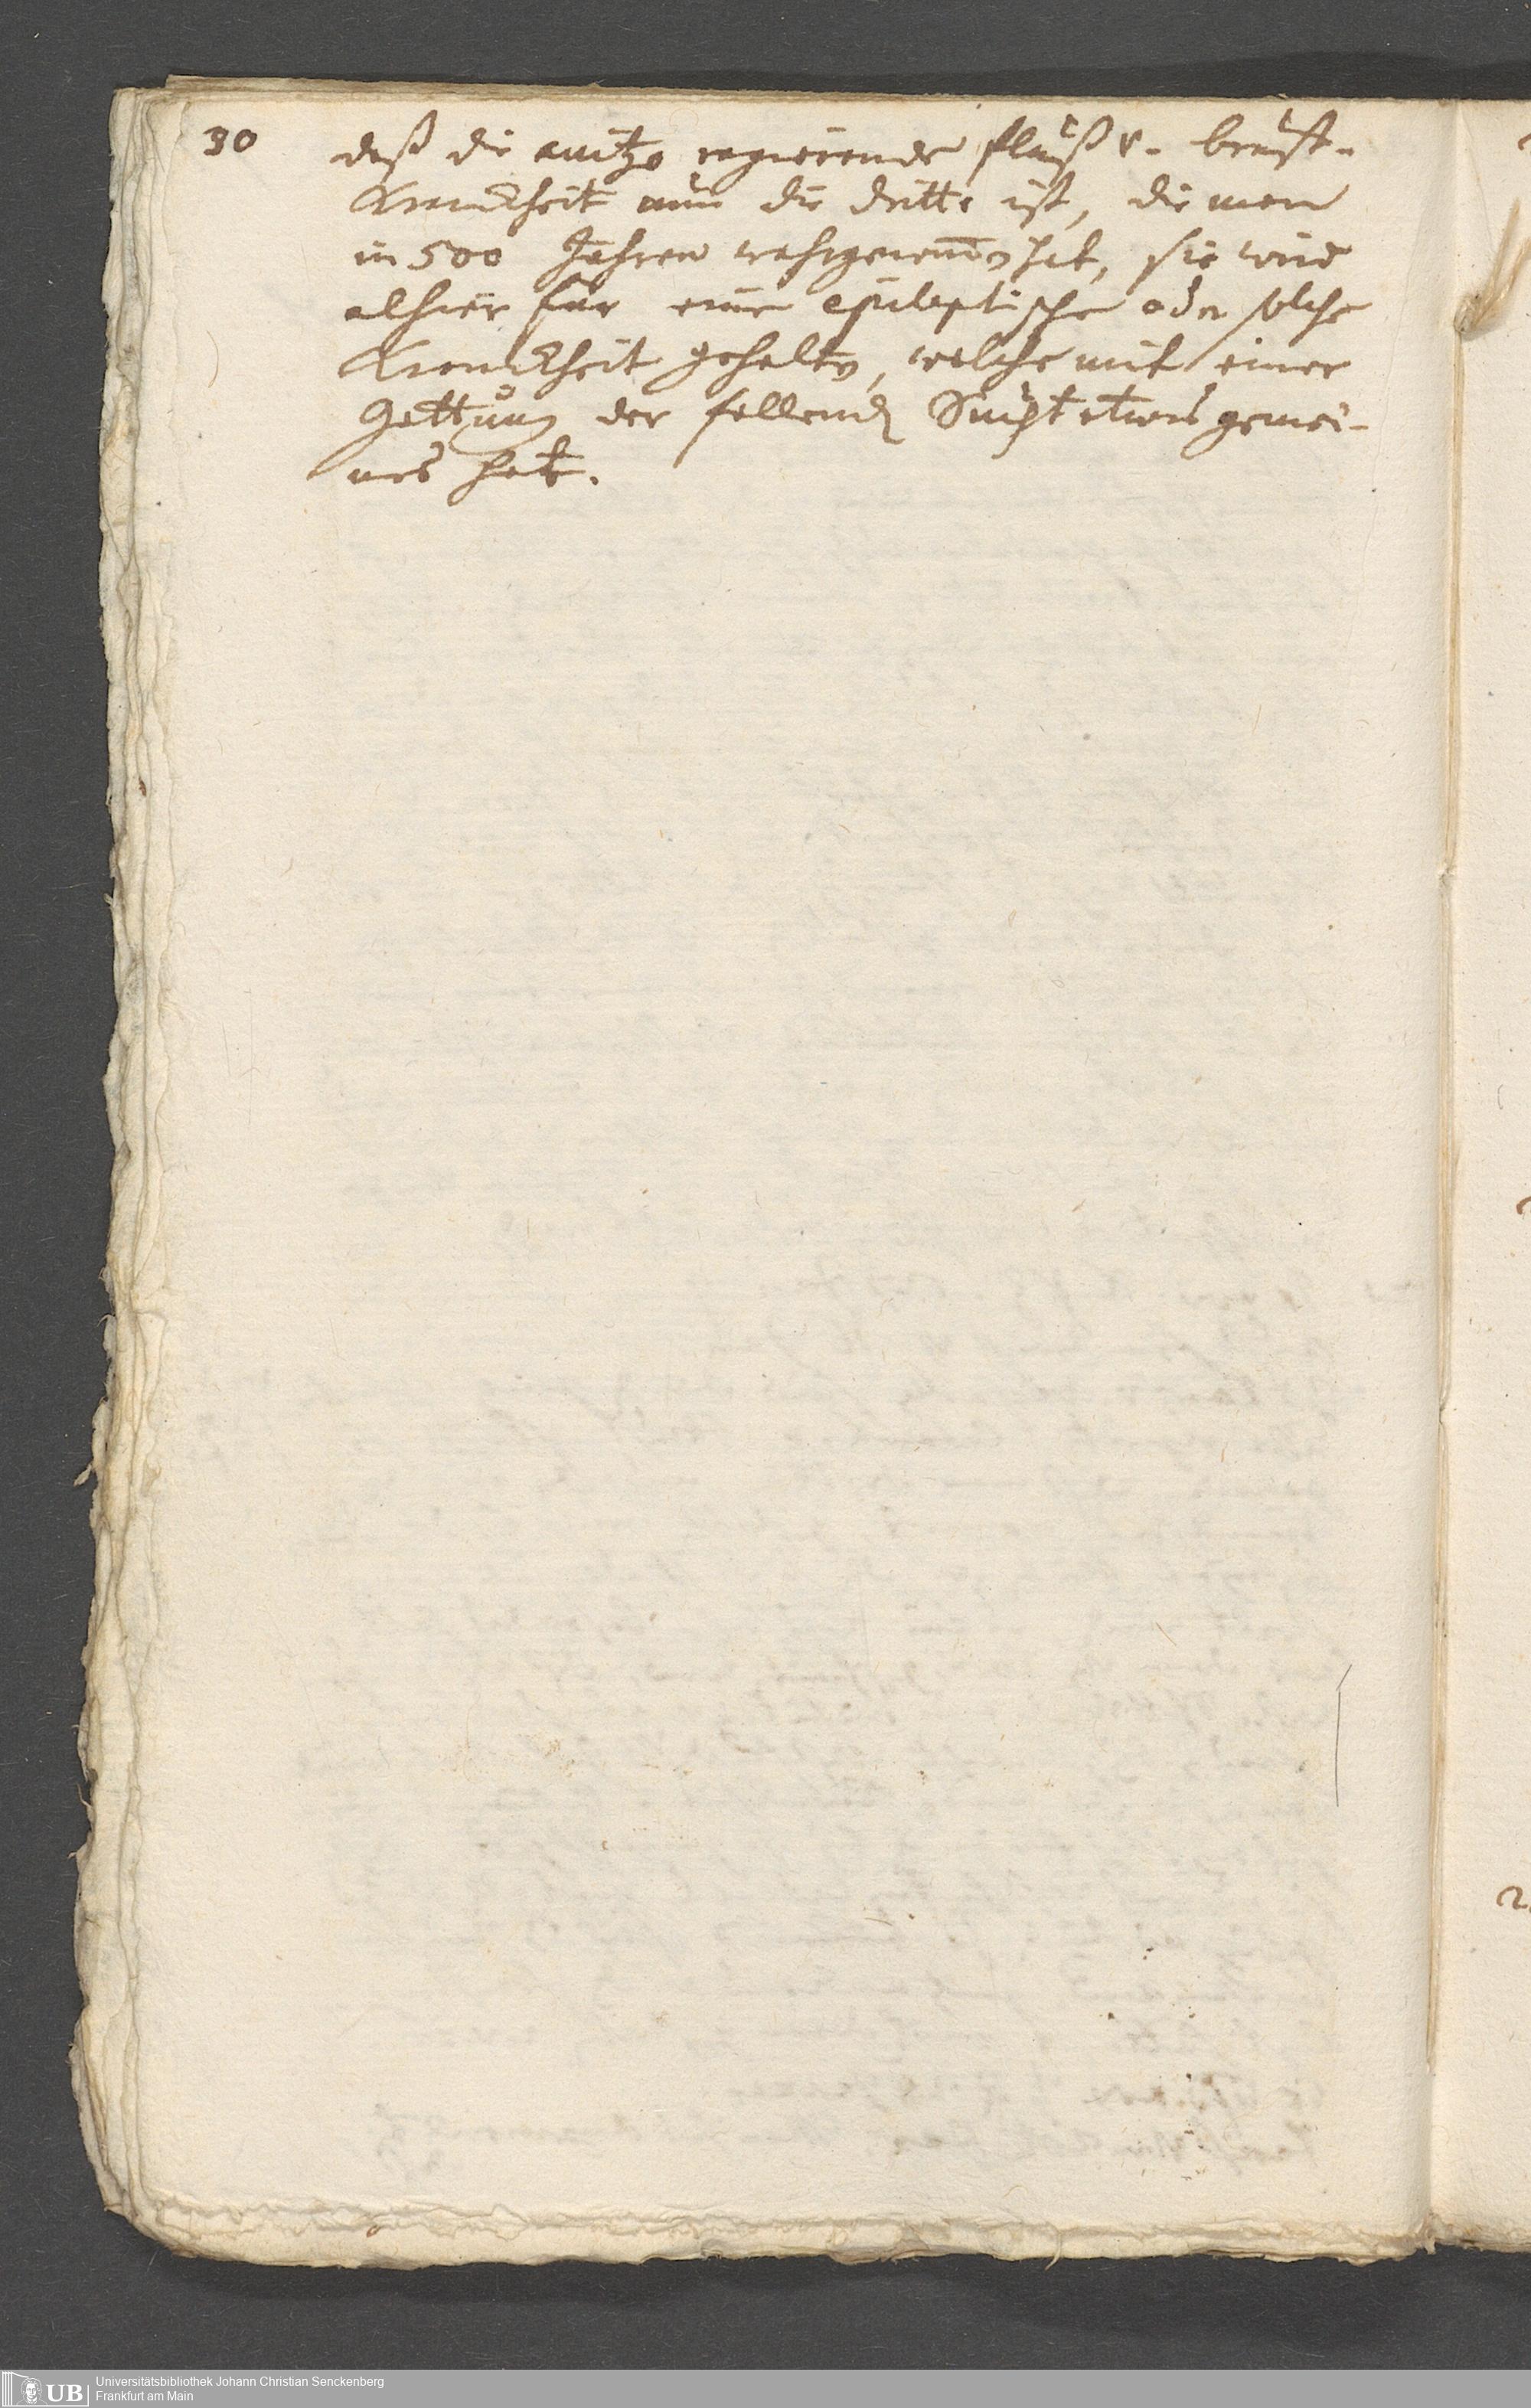 30 daß die anitzo regierende fluß u. brust-
Kranckheit nun die dritte ist, die man
in 500 Jahren wahrgenom̄en hat, sie wird
alhier für eine epileptische oder solche
Kranckheit gehalten, welche mit einer
Gattung der fallenden Sucht etwas gemei-
nes hat.
UB Universitätsbibliothek Johann Christian Senckenberg
Frankfurt am Main